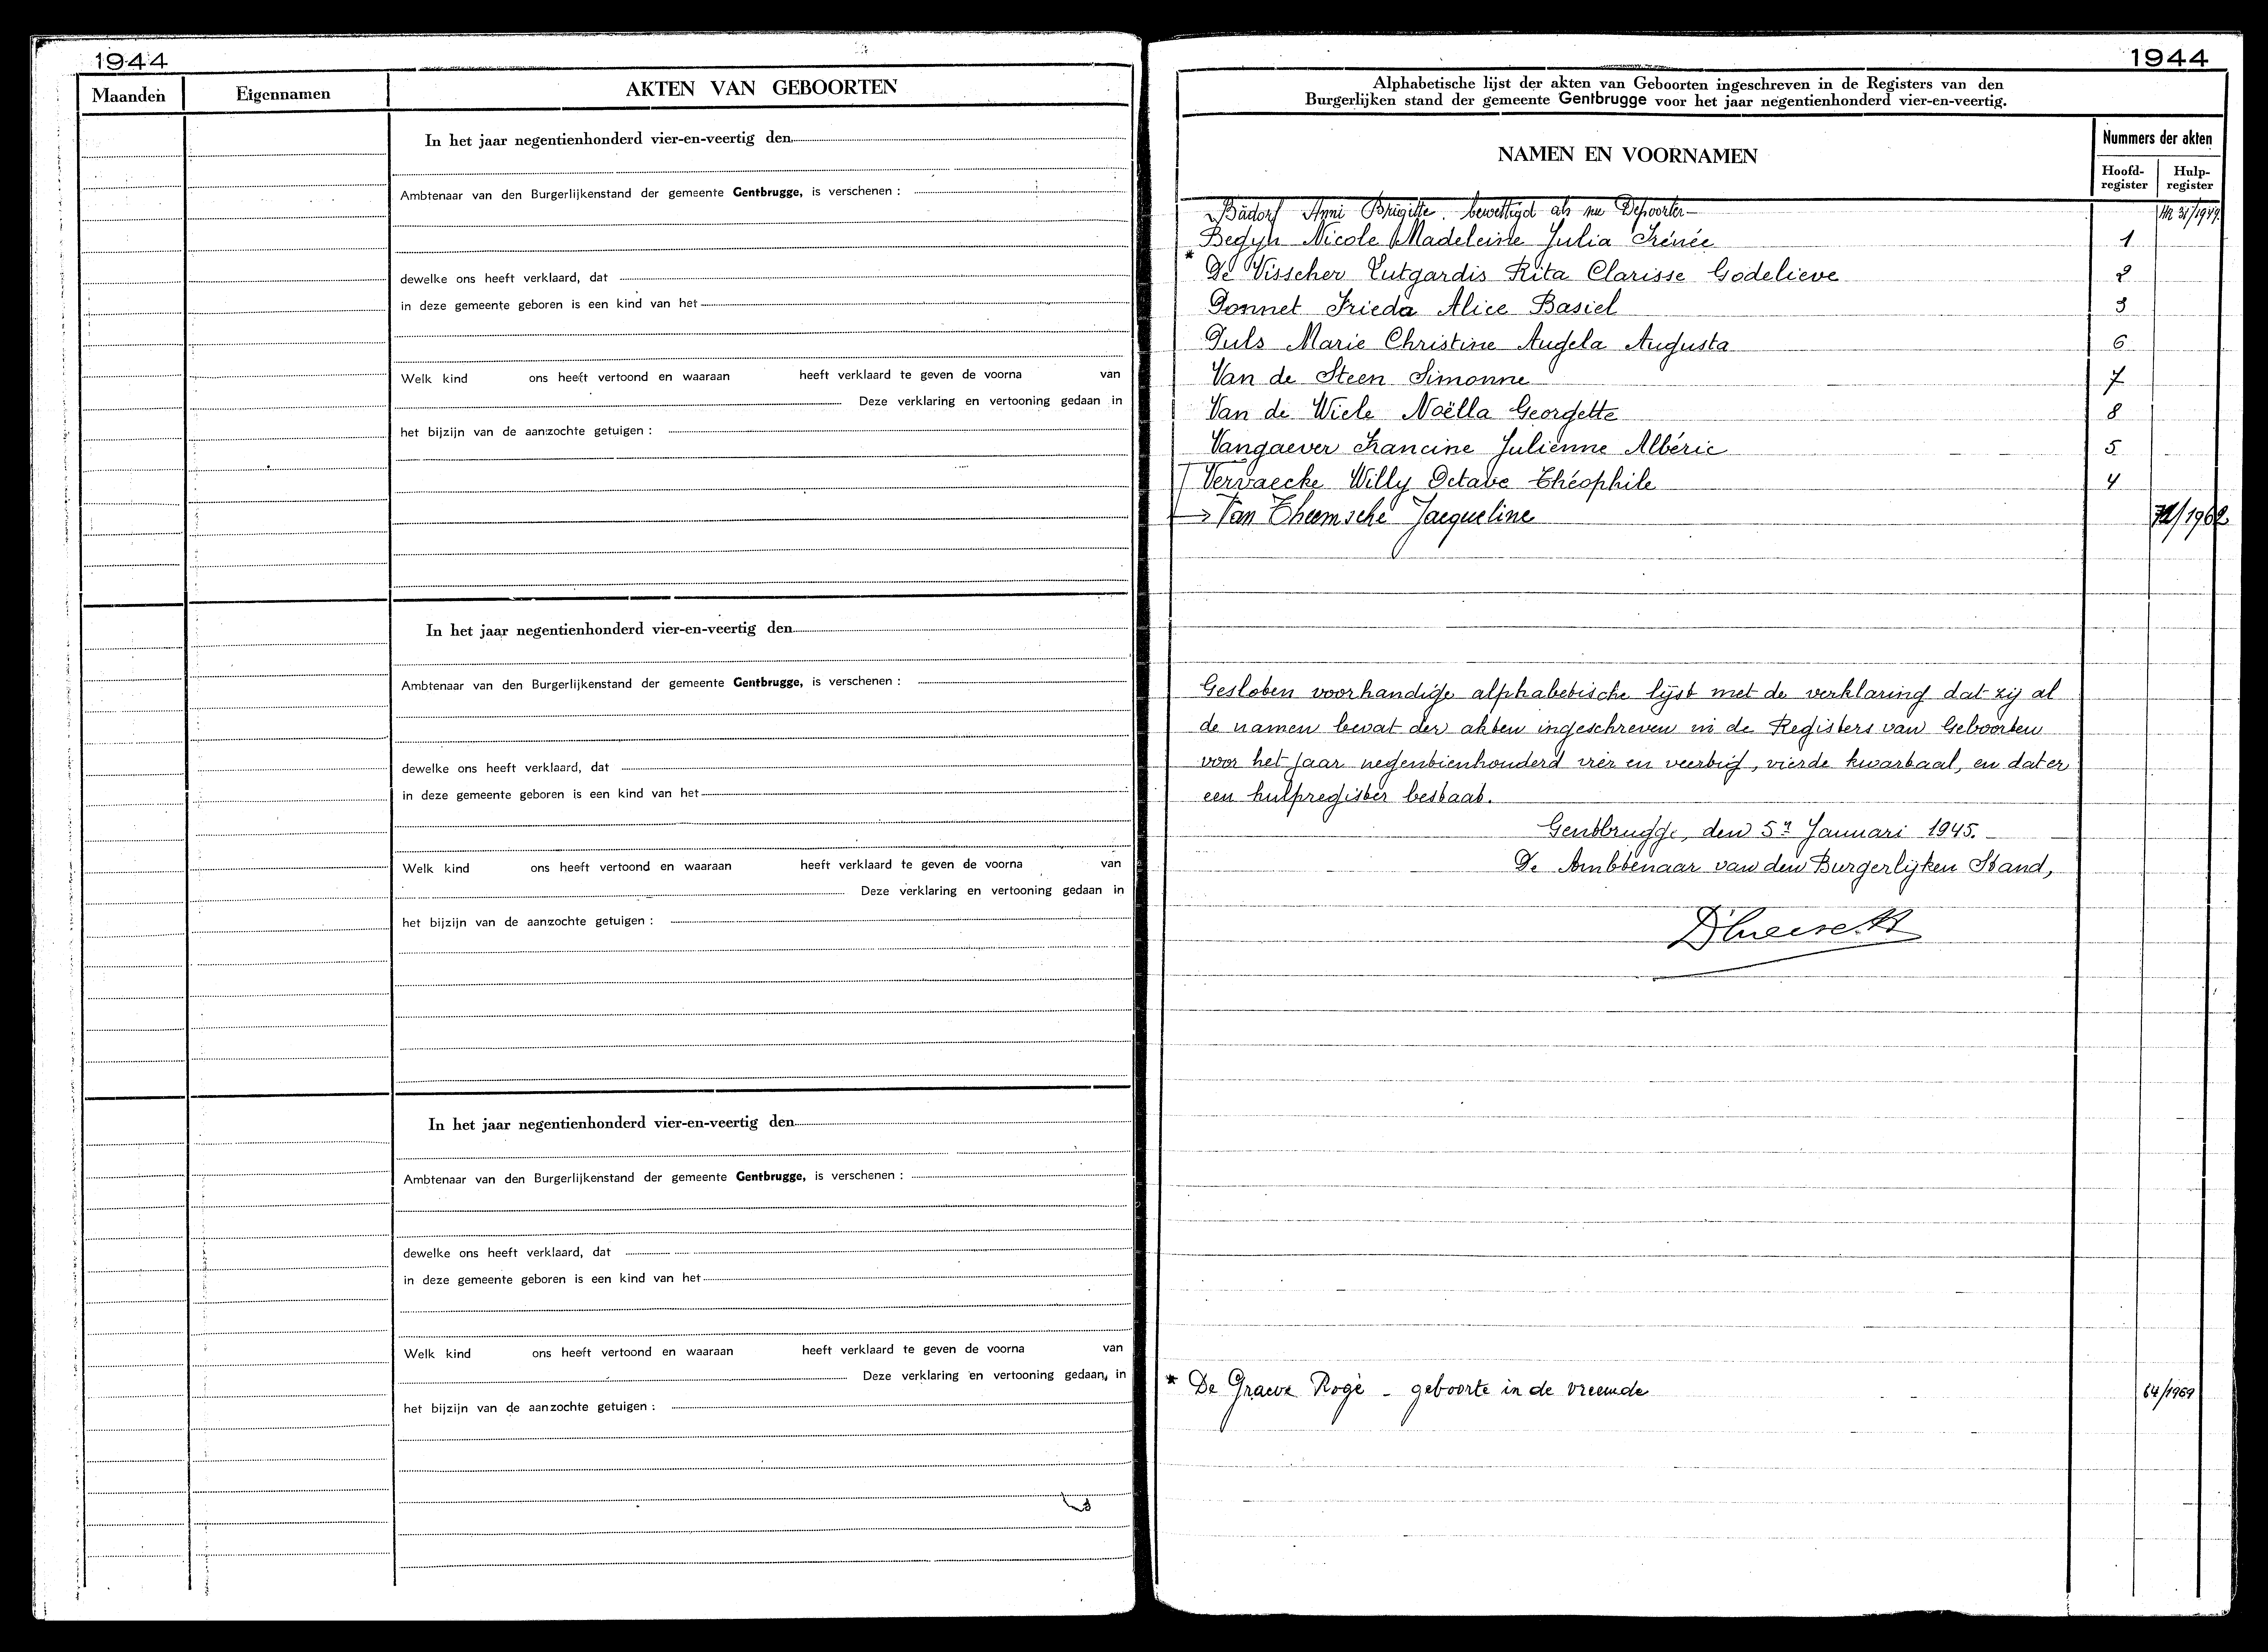 1944
Maanden
Eigennamen
AKTEN VAN GEBOORTEN
In het jaar negentienhonderd vier-en-veertig den
Ambtenaar van den Burgerlijkenstand der gemeente Gentbrugge, is verschenen :
dewelke ons heeft verklaard, dat
in deze gemeente geboren is een kind van het
Welk kind ons heeft vertoond en waaraan heeft verklaard te geven de voorna van
Deze verklaring en vertooning gedaan in
het bijzijn van de aanzochte getuigen :
In het jaar negentienhonderd vier-en-veertig den
Ambtenaar van den Burgerlijkenstand der gemeente Gentbrugge, is verschenen :
dewelke ons heeft verklaard, dat
in deze gemeente geboren is een kind van het
Welk kind ons heeft vertoond en waaraan heeft verklaard te geven de voorna van
Deze verklaring en vertooning gedaan in
het bijzijn van de aanzochte getuigen :
In het jaar negentienhonderd vier-en-veertig den
Ambtenaar van den Burgerlijkenstand der gemeente Gentbrugge, is verschenen :
dewelke ons heeft verklaard, dat
in deze gemeente geboren is een kind van het
Welk kind ons heeft vertoond en waaraan heeft verklaard te geven de voorna van
Deze verklaring en vertooning gedaan, in
het bijzijn van de aanzochte getuigen :
1944
Alphabetische lijst der akten van Geboorten ingeschreven in de Registers van den
Burgerlijken stand der gemeente Gentbrugge voor het jaar negentienhonderd vier-en-veertig.
NAMEN EN VOORNAMEN
Nummers der akten
Hoofd-register
Hulp-register
Bädorf Anni Brigitte. bewettigd als nu Depoorter
Begyn Nicole Madeleine Julia Irénée 1
* De Visscher Lutgardis Rita Clarisse Godelieve 2
Donnet Frieda Alice Basiel 3
Duls Marie Christine Angela Augusta 6
Van de Steen Simonne 7
Van de Wiele Noëlla Georgette 8
Vangaever Francine Julienne Albéric 5
Vervaecke Willy Octave Théophile 4
→ Van Theemsche Jacqueline 72/1962
Gesloten voorhandige alphabetische lijst met de verklaring dat zij al
de namen bevat der akten ingeschreven in de Registers van Geboorten
voor het jaar negentienhonderd vier en veertig, vierde kwartaal, en dat er
een hulpregister bestaat.
Gentbrugge, den 5n Januari 1945.
De Ambtenaar van den Burgerlijken Stand,
* De Graeve Rogé - geboorte in de vreemde 64/1969